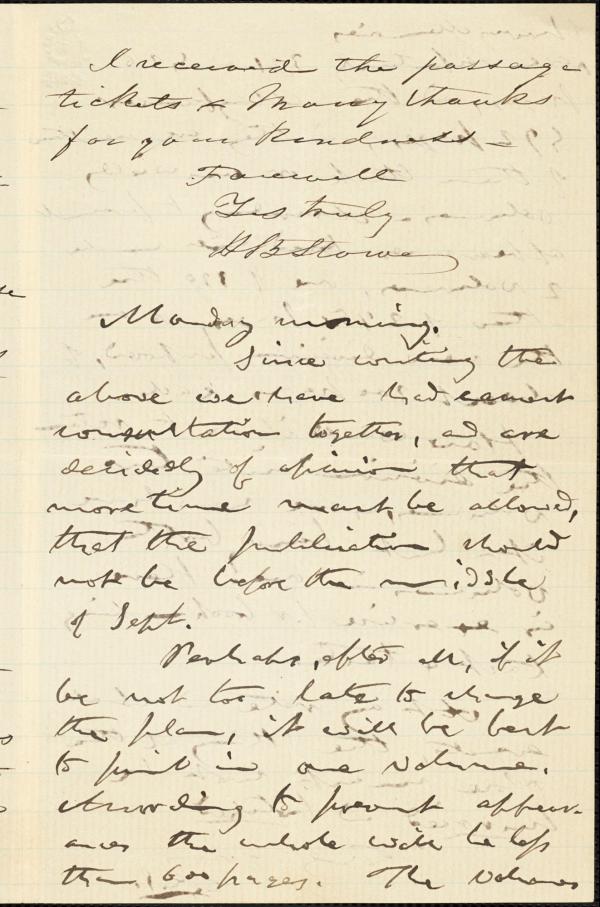 I received the passage
tickets & Many thanks
for your kindness –
Farewell
Yrs truly
H B Stowe
Monday morning.
Since writing the
above we have had earnest
consultation together, and are
decidedly of opinion that
more time must be allowed,
that the publication should
not be before the middle
of Sept.
Perhaps, after all, if it
be not too late to change
the plan, it will be best
to print in one volume.
According to present appear-
ances the whole will be less
than 600 pages. The volumes